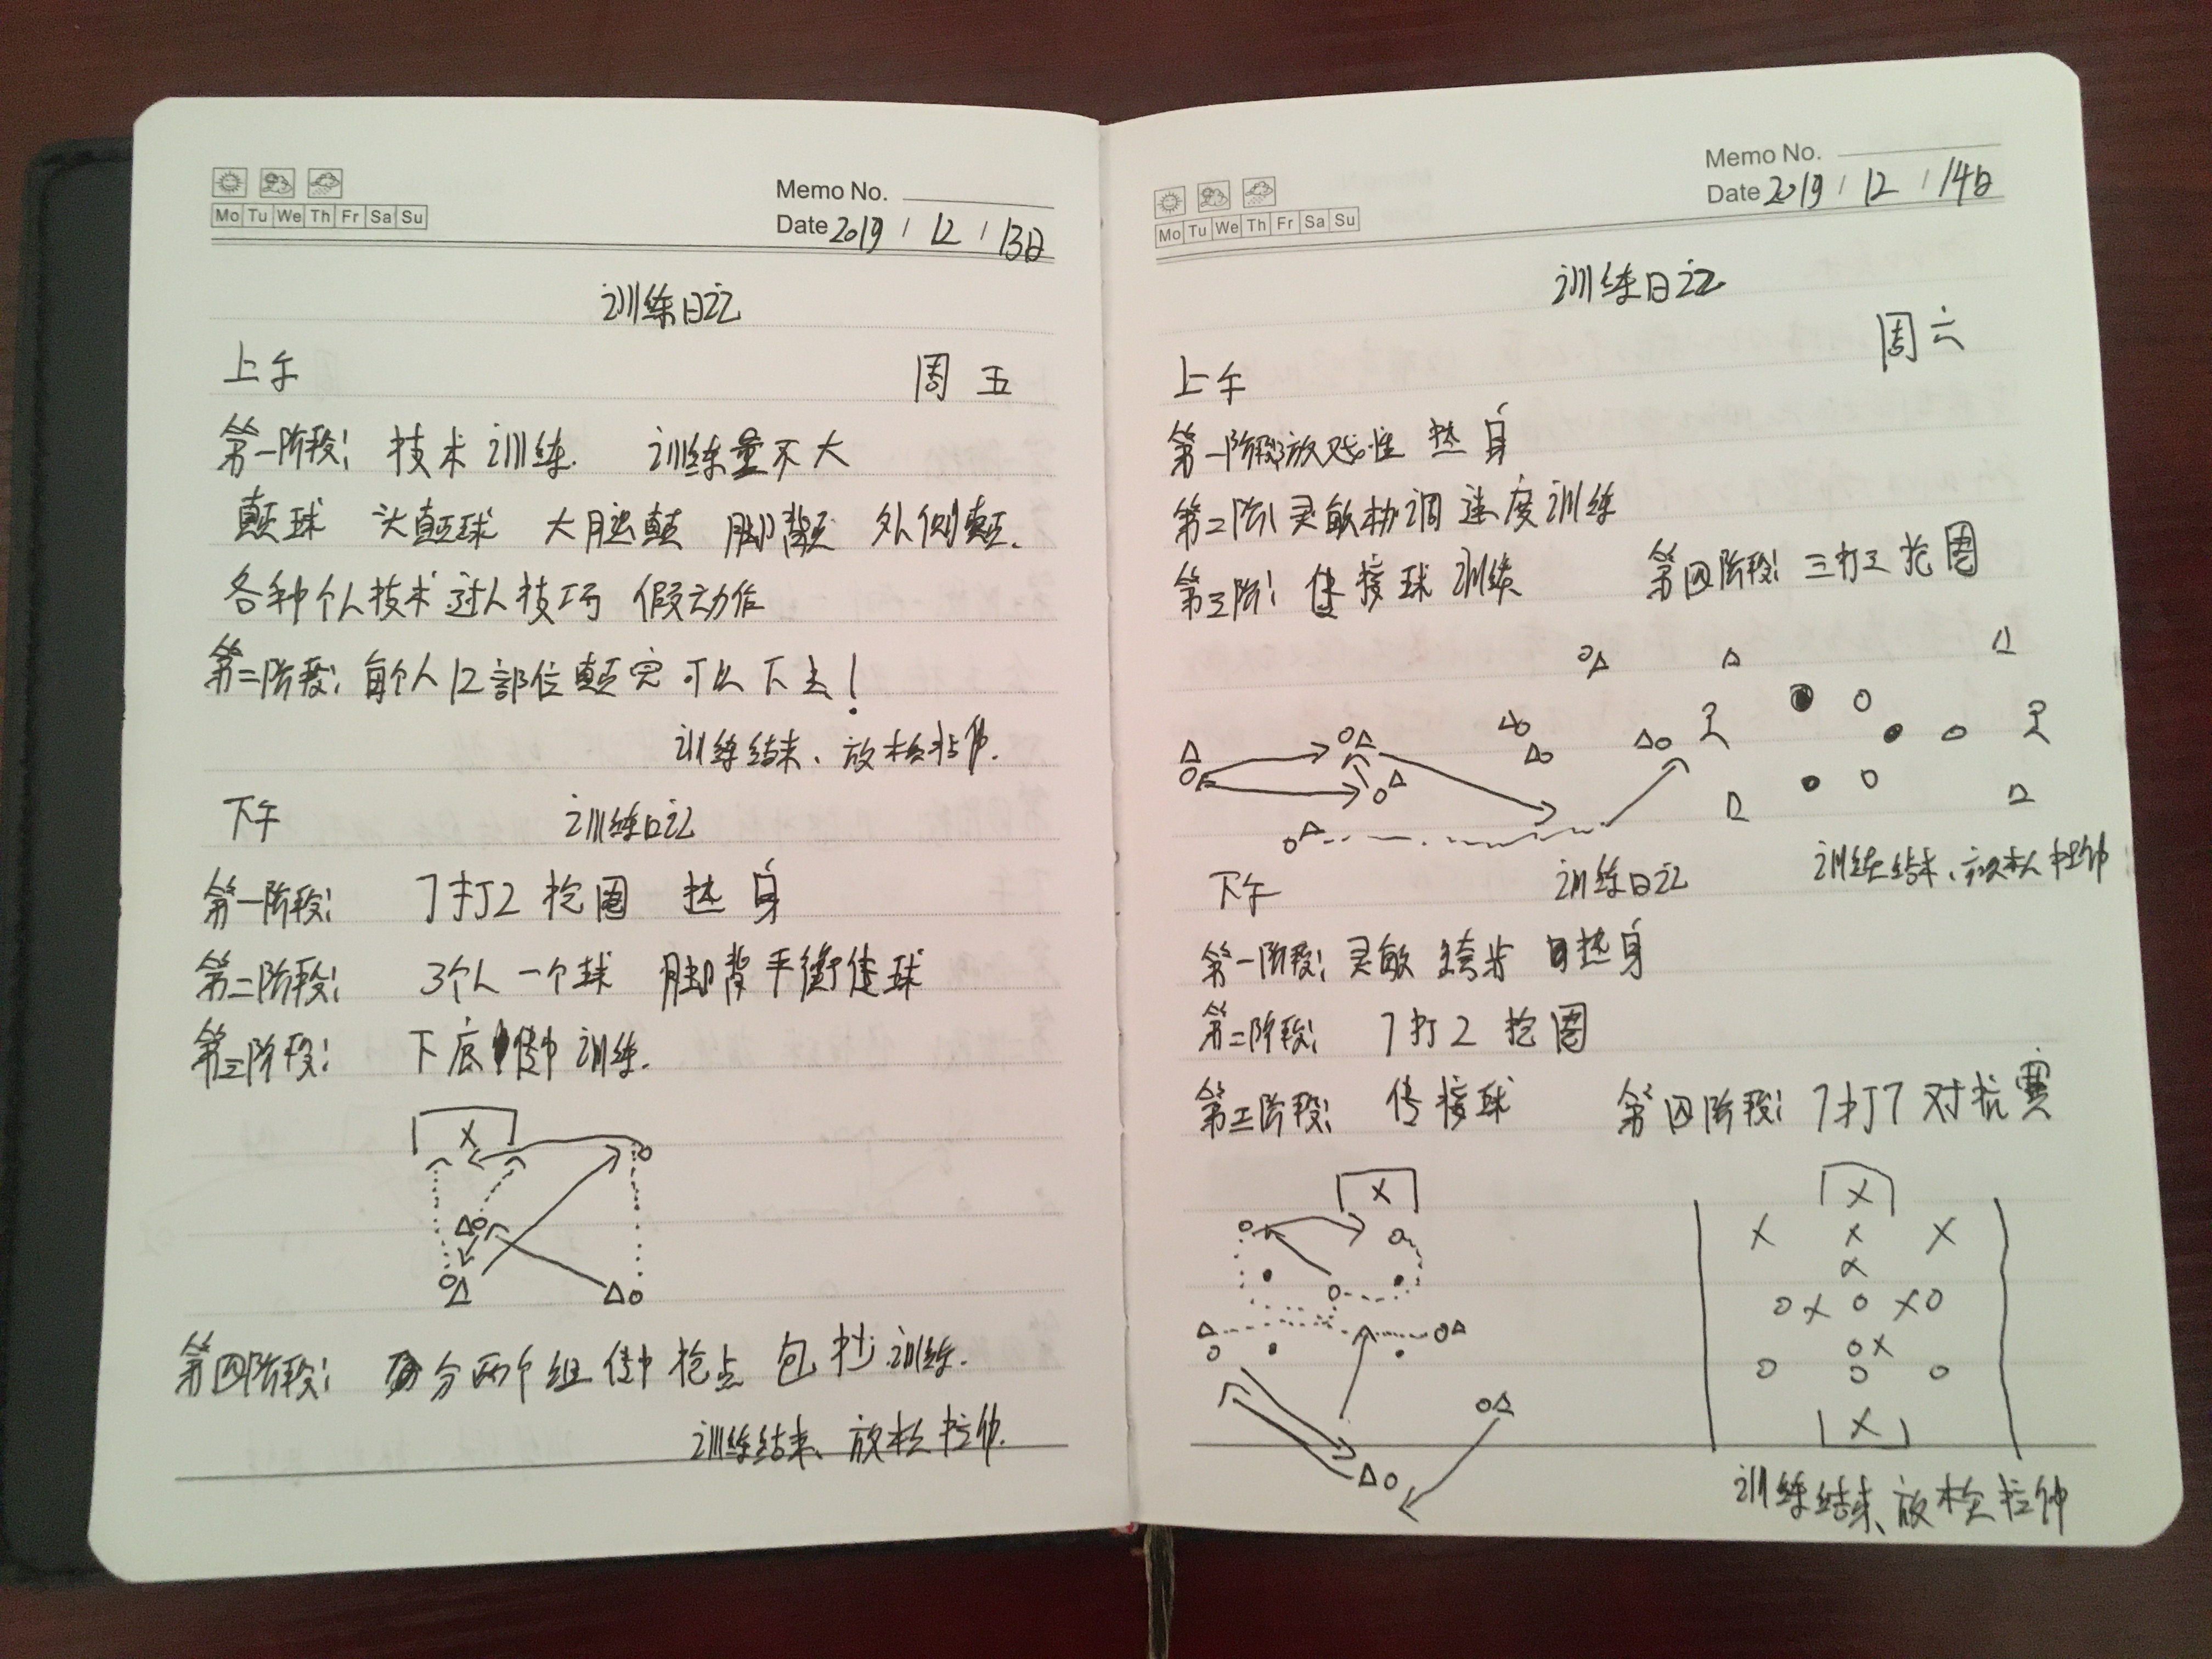 Mo Tu We Th Fr Sa Su
Memo No.
Date 2019 / 12 / 13日
训练日记
上午 周五
第一阶段: 技术训练. 训练量不大
颠球 头颠球 大腿颠 脚背颠 外侧颠.
各种个人技术 过人技巧 假动作
第二阶段: 每个人12部位颠完可以下去!
训练结束、放松拉伸.
下午 训练日记
第一阶段: 7打2 抢圈 热身
第二阶段: 3个人一个球 脚背平衡传球
第三阶段: 下底传中训练.
X
第四阶段: 分两个组传中抢点包抄训练.
训练结束、放松拉伸.
Mo Tu We Th Fr Sa Su
Memo No.
Date 2019 / 12 / 14日
训练日记
周六
上午
第一阶段放戏性 热身
第二阶: 灵敏协调速度训练
第三阶: 传接球训练 第四阶段: 三打三抢圈
训练结束、放松拉伸
下午 训练日记
第一阶段: 灵敏 跨步 热身
第二阶段: 7打2 抢圈
第三阶段: 传接球 第四阶段: 7打7对抗赛
X
X
X X X
X
X X
X
X
训练结束、放松拉伸